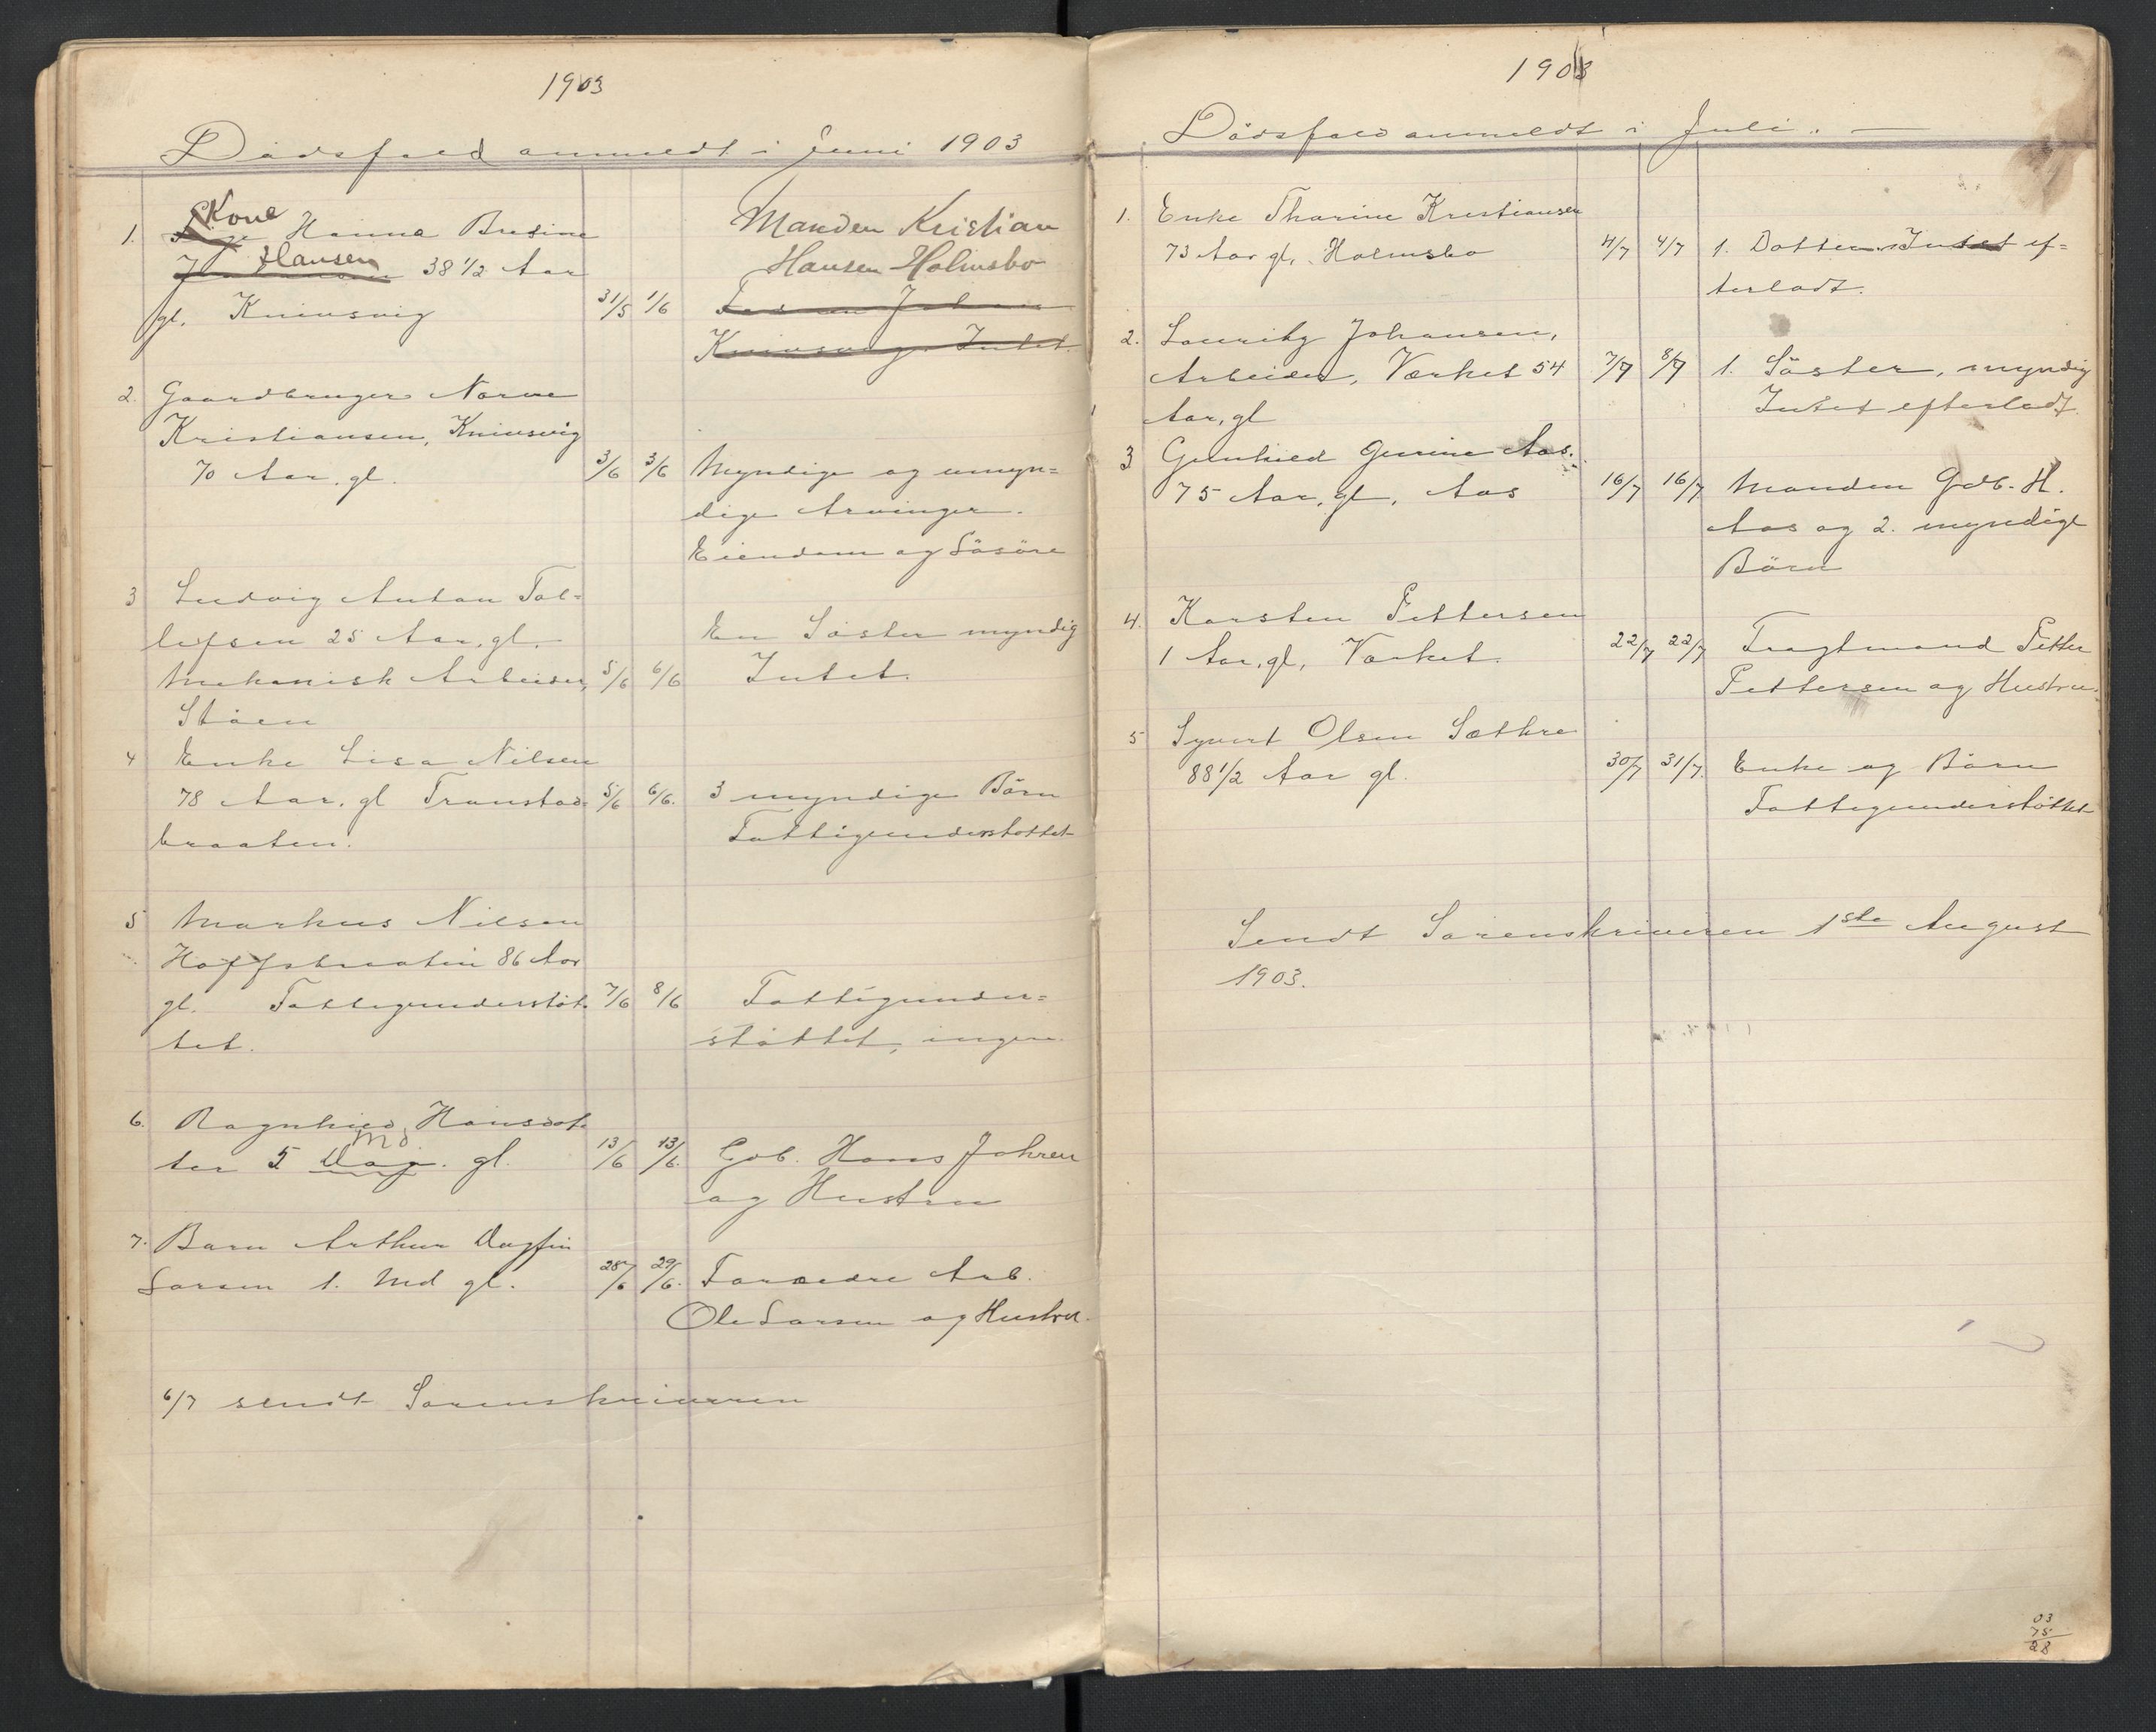 1903
Dödsfald anmeldt i Juni 1903
1. Kone Hanna Bredine
Hansen 38 1/2 Aar
gl. Knivsvig 31/5 1/6
Manden Kristian
Hansen Holmsbo
Knivsvig. Intet.
2. Gaardbruger Narve
Kristiansen, Knivsvig
70 Aar. gl. 3/6 3/6 Myndige og umyn=
dige Arvinger.
Eiendom og Løsøre
3 Ludvig Anton Tol=
lefsen 25 Aar. gl. En Søster myndig
Mekanisk Arbeider, 5/6 6/6 Intet.
Støen
4 Enke Lisa Nilsen
78 Aar. gl Tronstad= 5/6 6/6. 3 myndige Börn
braaten. Fattigunderstøttet
5 Markus Nilsen
Hoffsbraaten 86 Aar
gl. Fattigunderstöt= 7/6 8/6 Fattigunder=
tet. støttet, ingen.
6. Ragnhild Hansdot=
ter 5 Dag. Md. gl. 13/6 13/6. Gdb. Hans Johren
og Hustru
7. Barn Arthur Dagfin
Larsen 1. Md gl. 28/6 29/6. Foræedre Arb.
Ole Larsen og Hustru.
6/7 sendt Sorenskriveren
1903
Dödsfald anmeldt i Juli. —
1. Enke Thorine Kristiansen
73 Aar gl. Holmsbo 4/7 4/7 1. Datter. Intet ef=
terladt.
2. Lauritz Johansen,
Arbeider, Værket 54 7/7 8/7 1. Söster, myndig
Aar, gl Intet efterladt.
3 Gunhild Gurine Aas.
75 Aar, gl, Aas 16/7 16/7 Manden Gdb. H.
Aas og 2. myndige
Börn
4. Karsten Pettersen
1 Aar, gl, Værket. 22/7 22/7 Fragtmand Petter
Pettersen og Hustru.
5 Syvert Olsen Sæthre
88 1/2 Aar gl. 30/7 31/7. Enke og Börn
Fattigunderstöttet
Sendt Sorenskriveren 1ste August
1903.
03
75
28